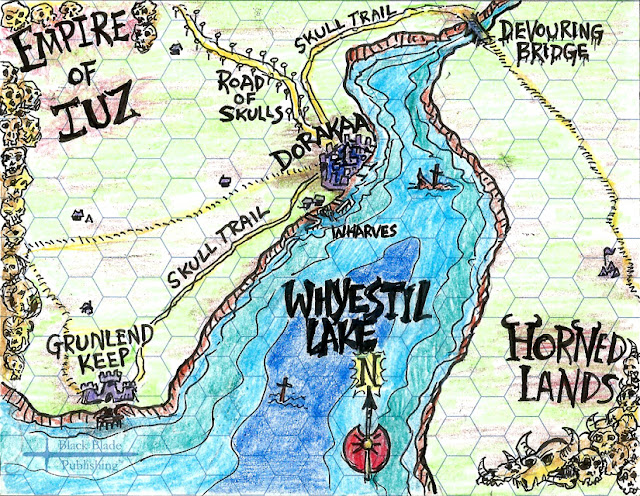 EMPIRE
OF
IUZ
SKULL TRAIL
DEVOURING
BRIDGE
ROAD
OF
SKULLS
DORAKAA
SKULL TRAIL
WHARVES
WHYESTIL
LAKE
N
GRUNLEND
KEEP
HORNED
LANDS
Black Blade
Publishing